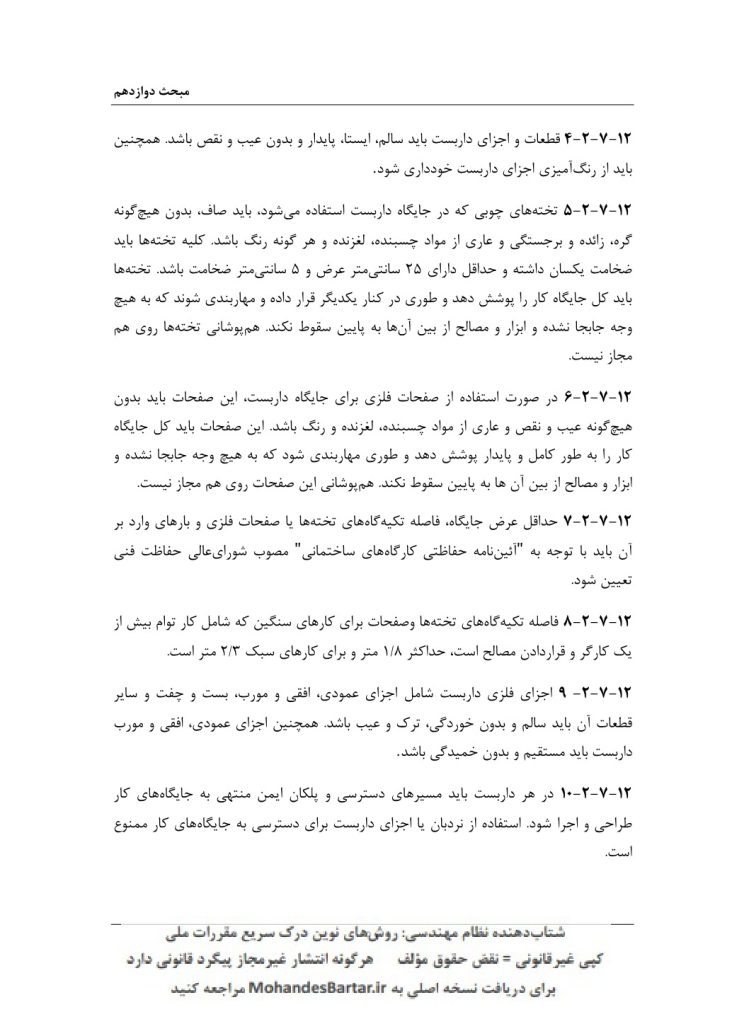 مبحث دوازدهم
۱۲-۷-۲-۴ قطعات و اجزای داربست باید سالم، ایستا، پایدار و بدون عیب و نقص باشد. همچنین
باید از رنگ‌آمیزی اجزای داربست خودداری شود.
۱۲-۷-۲-۵ تخته‌های چوبی که در جایگاه داربست استفاده می‌شود، باید صاف، بدون هیچ‌گونه
گره، زائده و برجستگی و عاری از مواد چسبنده، لغزنده و هر گونه رنگ باشد. کلیه تخته‌ها باید
ضخامت یکسان داشته و حداقل دارای ۲۵ سانتی‌متر عرض و ۵ سانتی‌متر ضخامت باشد. تخته‌ها
باید کل جایگاه کار را پوشش دهد و طوری در کنار یکدیگر قرار داده و مهاربندی شوند که به هیچ
وجه جابجا نشده و ابزار و مصالح از بین آن‌ها به پایین سقوط نکند. هم‌پوشانی تخته‌ها روی هم
مجاز نیست.
۱۲-۷-۲-۶ در صورت استفاده از صفحات فلزی برای جایگاه داربست، این صفحات باید بدون
هیچ‌گونه عیب و نقص و عاری از مواد چسبنده، لغزنده و رنگ باشد. این صفحات باید کل جایگاه
کار را به طور کامل و پایدار پوشش دهد و طوری مهاربندی شود که به هیچ وجه جابجا نشده و
ابزار و مصالح از بین آن ها به پایین سقوط نکند. هم‌پوشانی این صفحات روی هم مجاز نیست.
۱۲-۷-۲-۷ حداقل عرض جایگاه، فاصله تکیه‌گاه‌های تخته‌ها یا صفحات فلزی و بارهای وارد بر
آن باید با توجه به "آئین‌نامه حفاظتی کارگاه‌های ساختمانی" مصوب شورای‌عالی حفاظت فنی
تعیین شود.
۱۲-۷-۲-۸ فاصله تکیه‌گاه‌های تخته‌ها وصفحات برای کارهای سنگین که شامل کار توام بیش از
یک کارگر و قراردادن مصالح است، حداکثر ۱/۸ متر و برای کارهای سبک ۲/۳ متر است.
۱۲-۷-۲- ۹ اجزای فلزی داربست شامل اجزای عمودی، افقی و مورب، بست و چفت و سایر
قطعات آن باید سالم و بدون خوردگی، ترک و عیب باشد. همچنین اجزای عمودی، افقی و مورب
داربست باید مستقیم و بدون خمیدگی باشد.
۱۲-۷-۲-۱۰ در هر داربست باید مسیرهای دسترسی و پلکان ایمن منتهی به جایگاه‌های کار
طراحی و اجرا شود. استفاده از نردبان یا اجزای داربست برای دسترسی به جایگاه‌های کار ممنوع
است.
شتاب‌دهنده نظام مهندسی: روش‌های نوین درک سریع مقررات ملی
کپی غیرقانونی = نقض حقوق مؤلف هرگونه انتشار غیرمجاز پیگرد قانونی دارد
برای دریافت نسخه اصلی به MohandesBartar.ir مراجعه کنید